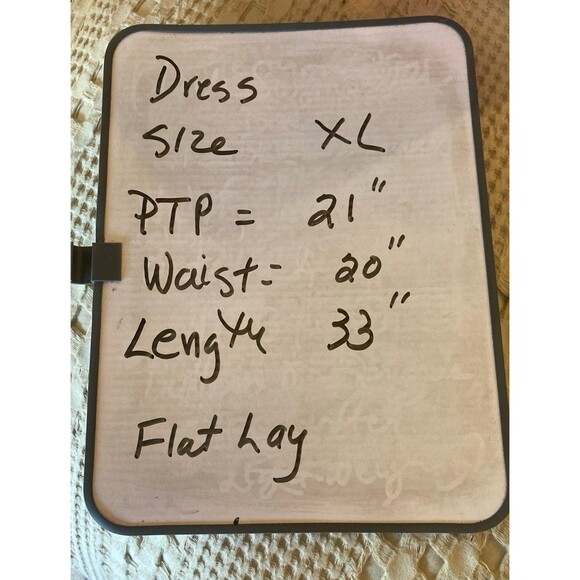 Dress
Size XL
PTP = 21"
Waist= 20"
Length 33"
Flat Lay